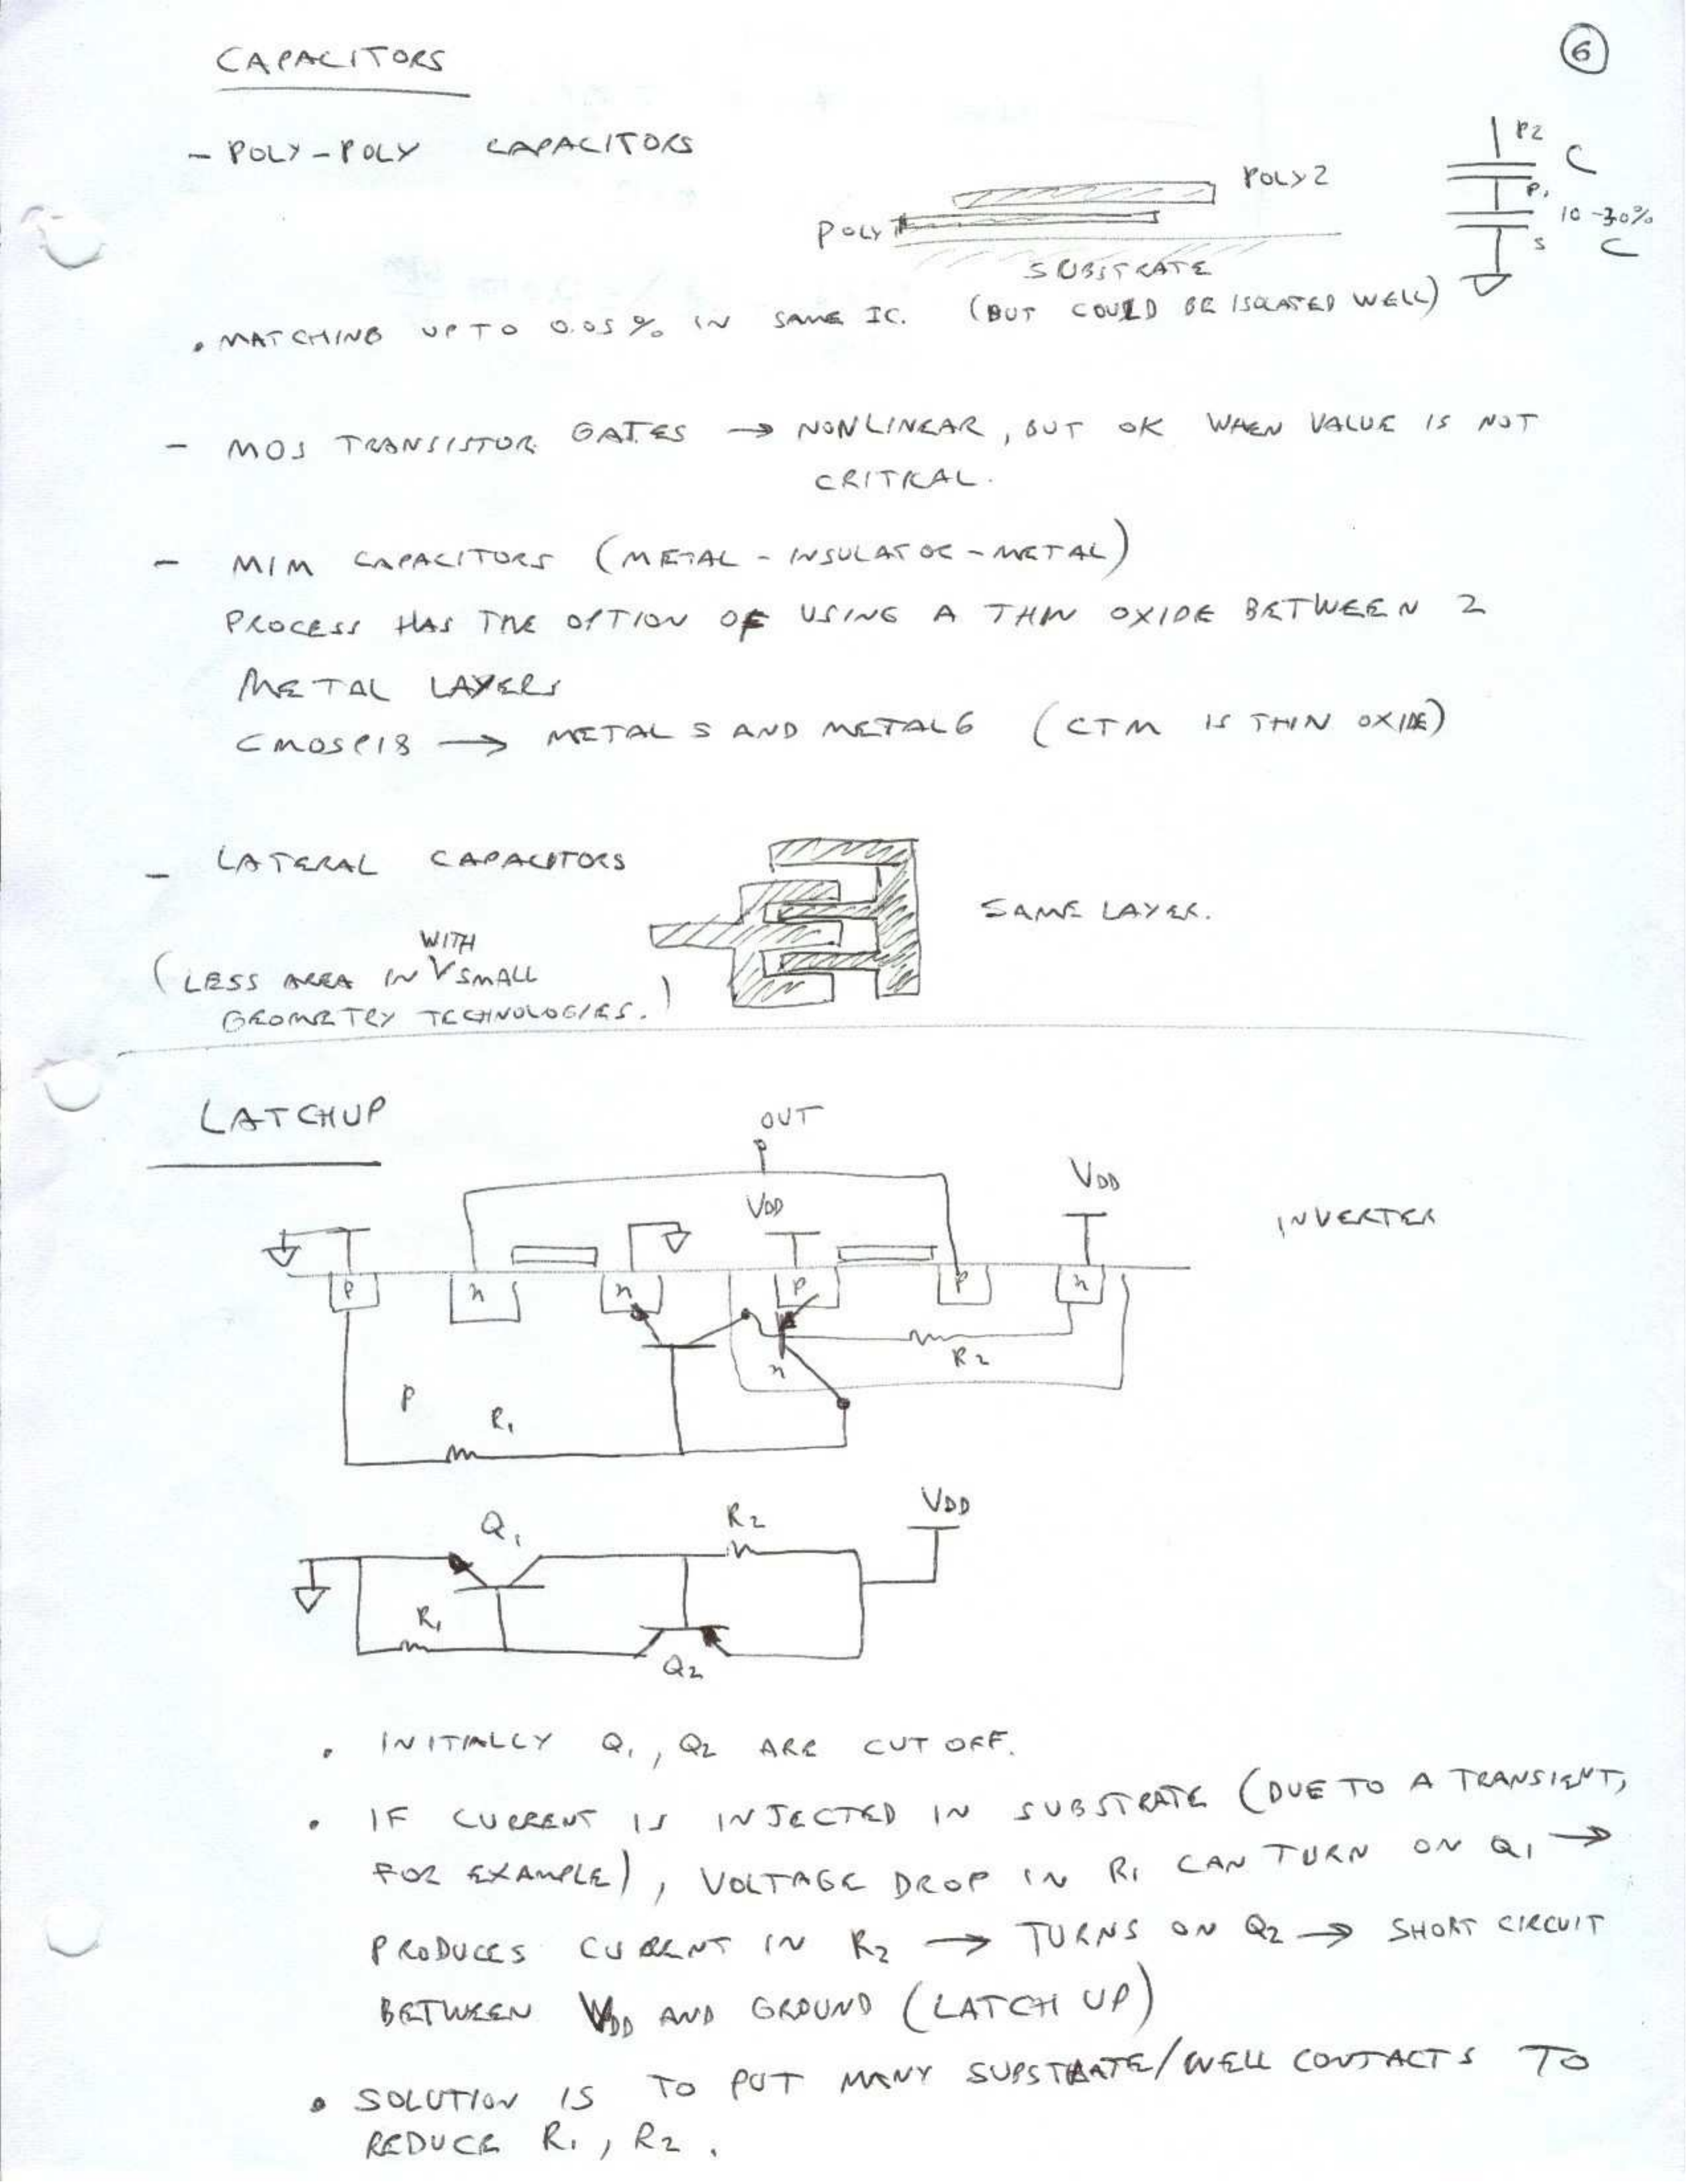 6
CAPACITORS
- POLY-POLY CAPACITORS
POLY2
POLY1
SUBSTRATE
(BUT COULD BE ISOLATED WELL)
P2
C
P1
10-30%
C
S
• MATCHING UP TO 0.05% IN SAME IC.
- MOS TRANSISTOR GATES → NONLINEAR, BUT OK WHEN VALUE IS NOT
CRITICAL.
- MIM CAPACITORS (METAL-INSULATOR-METAL)
PROCESS HAS THE OPTION OF USING A THIN OXIDE BETWEEN 2
METAL LAYERS
CMOSP18 → METAL 5 AND METAL 6 (CTM IS THIN OXIDE)
- LATERAL CAPACITORS
SAME LAYER.
WITH
(LESS AREA IN V SMALL
GEOMETRY TECHNOLOGIES.)
LATCHUP
OUT
VDD
VDD
INVERTER
P n n P P n
R2
n
P
R1
Q1
R2
VDD
R1
Q2
• INITIALLY Q1, Q2 ARE CUT OFF.
• IF CURRENT IS INJECTED IN SUBSTRATE (DUE TO A TRANSIENT,
FOR EXAMPLE), VOLTAGE DROP IN R1 CAN TURN ON Q1 →
PRODUCES CURRENT IN R2 → TURNS ON Q2 → SHORT CIRCUIT
BETWEEN VDD AND GROUND (LATCH UP)
• SOLUTION IS TO PUT MANY SUBSTRATE/WELL CONTACTS TO
REDUCE R1, R2.